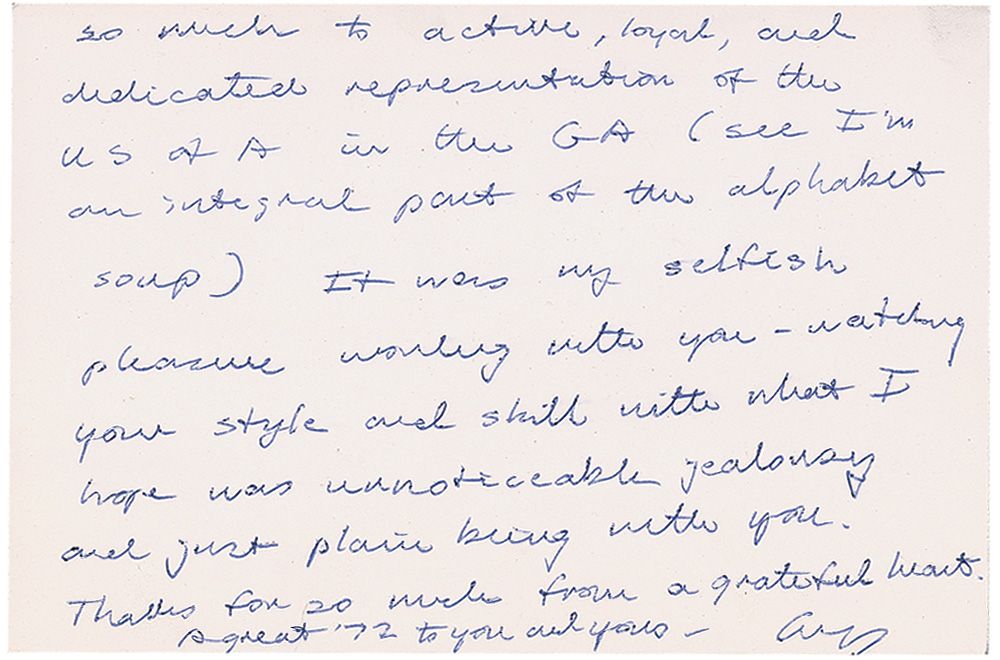 so much to active, loyal, and
dedicated representation of the
US of A in the GA (see I'm
an integral part of the alphabet
soup) It was my selfish
pleasure working with you - watching
your style and skill with what I
hope was unnoticeable jealousy
and just plain being with you.
Thanks for so much from a grateful heart.
A great '72 to you and yours -